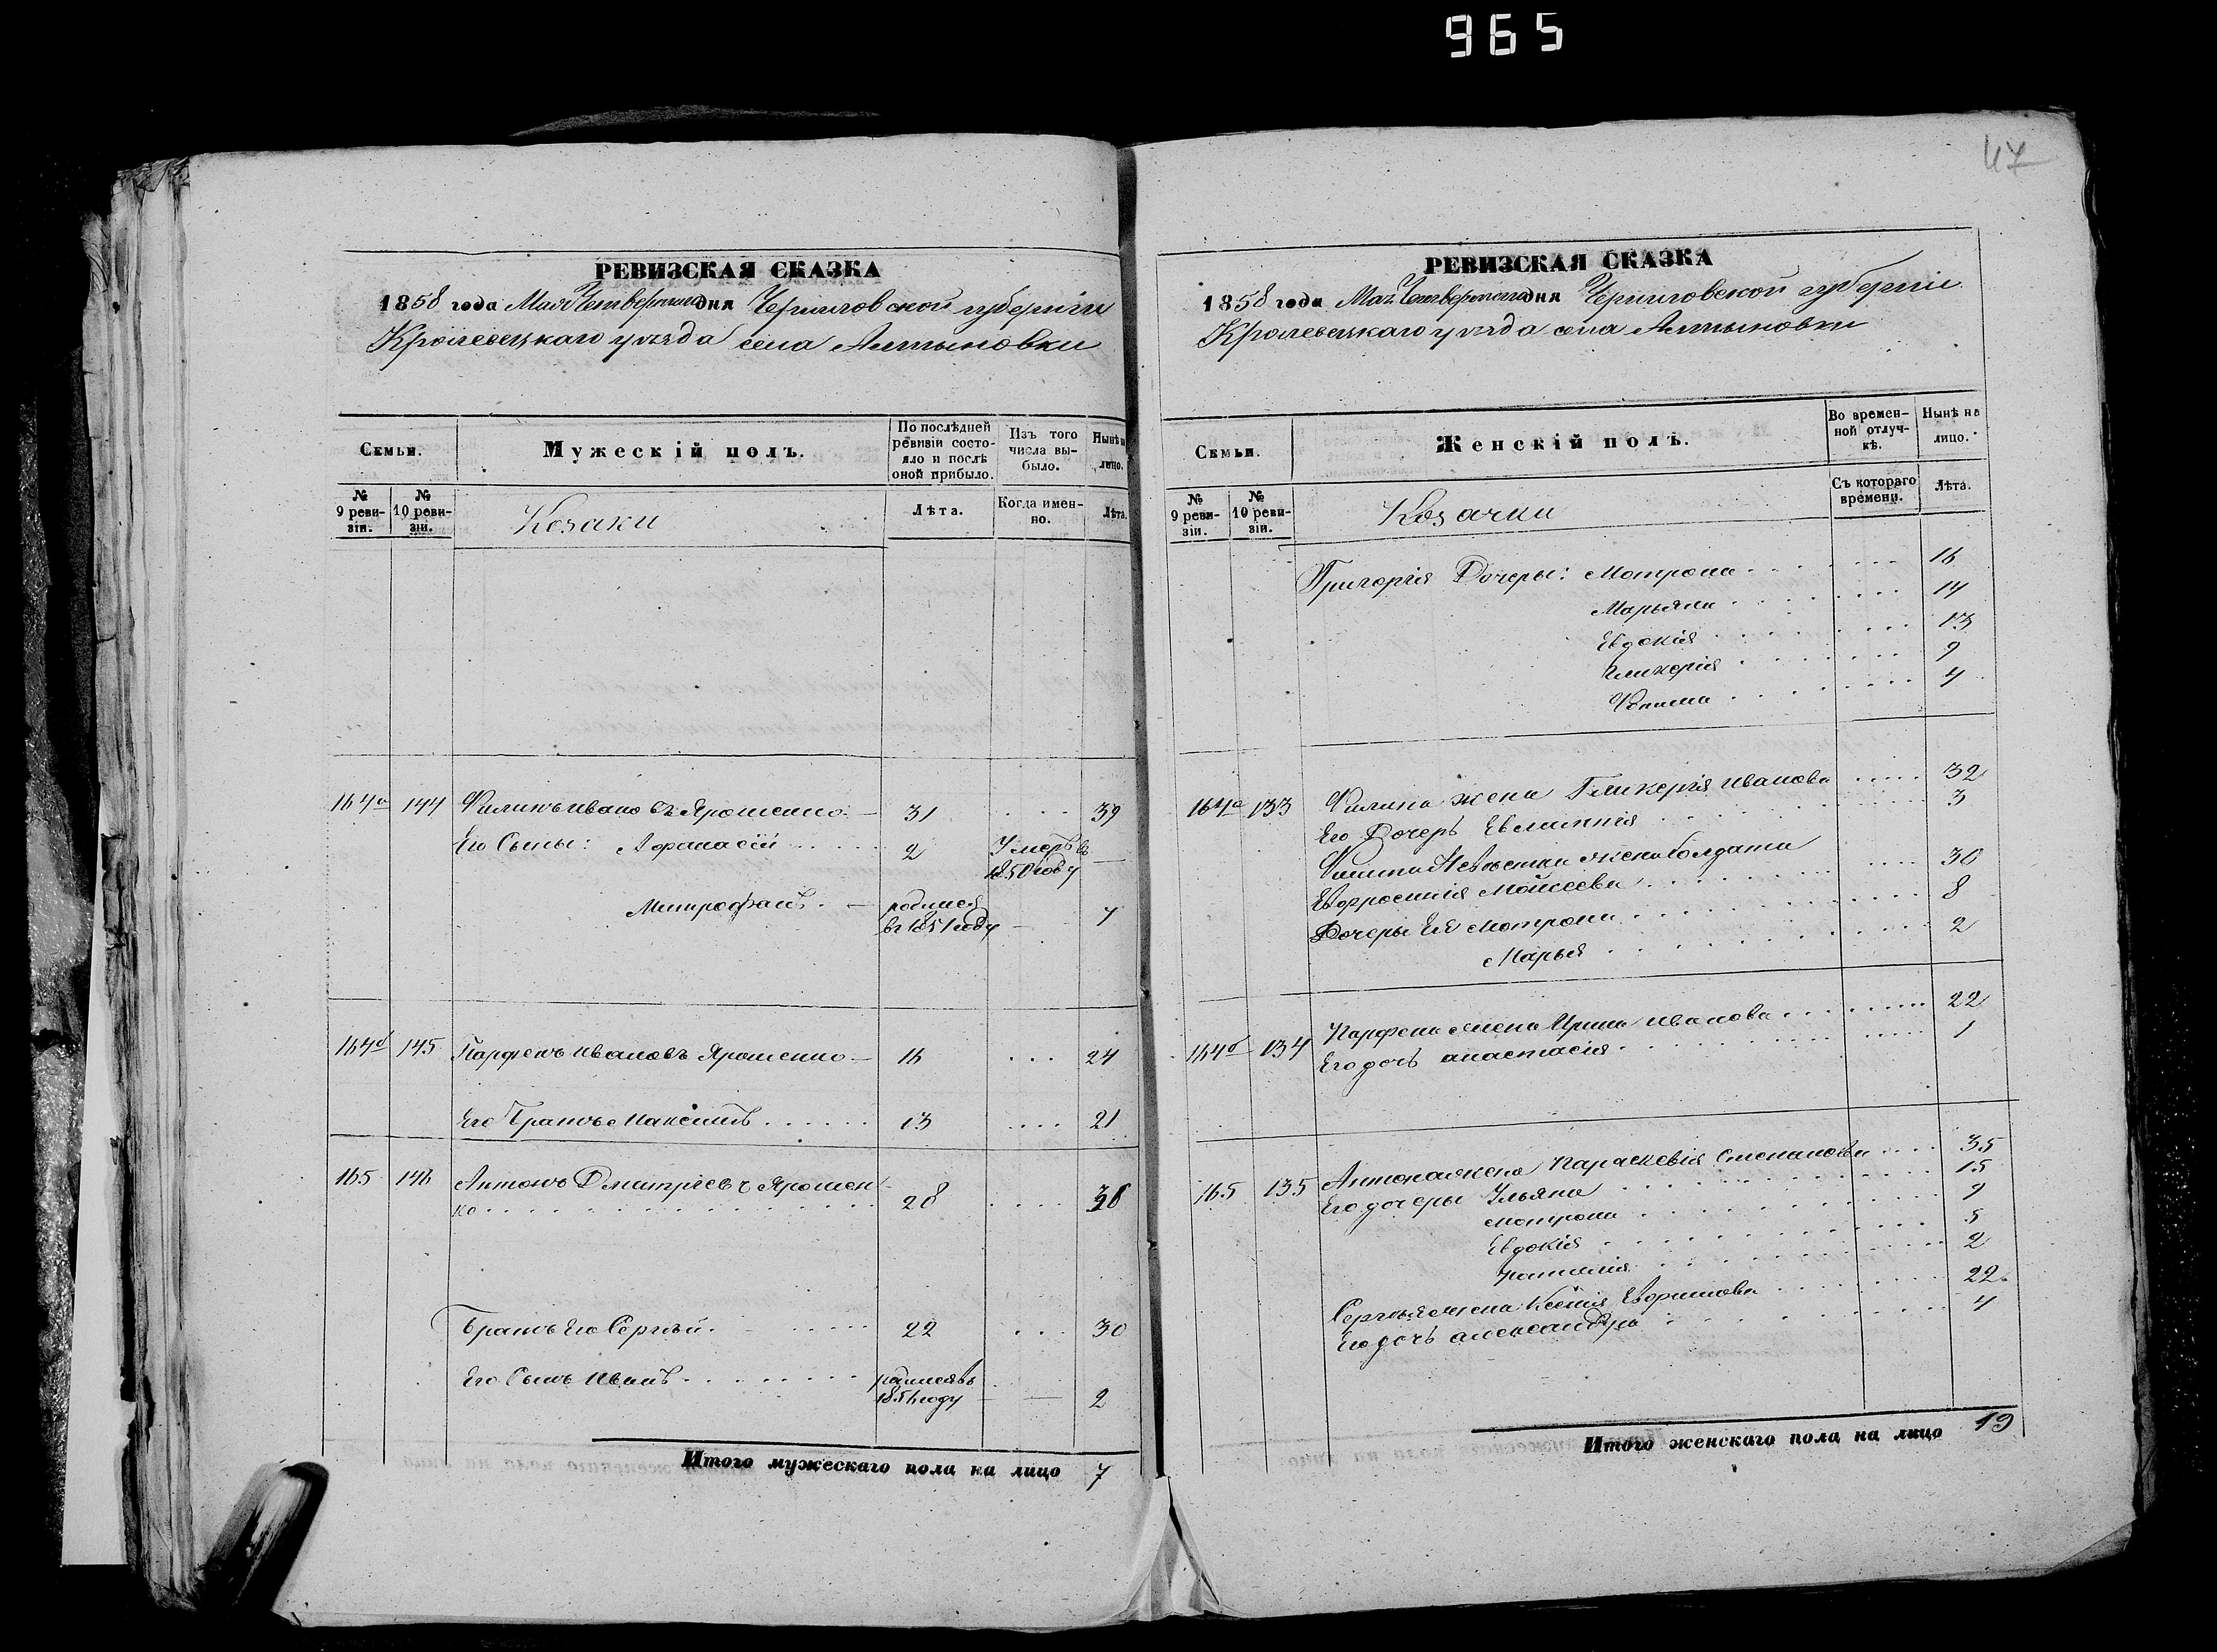 965
47
РЕВИЗСКАЯ СКАЗКА
1858 года Мая Четвертого дня Черниговской губернiи
Кролевецкаго уѣзда села Алтыновки
Семьи.
Мужескiй полъ.
По послѣдней ревизiи состояло и послѣ оной прибыло.
Изъ того числа выбыло.
Нынѣ на лицо.
№ 9 ревизiи.
№ 10 ревизiи.
Козаки
Лѣта.
Когда именно.
Лѣта.
164а 144 Филипъ Ивановъ Ярошенко 31 39
Его Сыны: Афанасiй 2 Умеръ въ 1850 году
Митрофанъ родился въ 1851 году 7
164б 145 Парфенъ Ивановъ Ярошенко 16 24
Его Братъ Максимъ 13 21
165 146 Антонъ Дмитрiевъ Ярошен
ко 28 36
Братъ Его Сергѣй 22 30
Его Сынъ Иванъ родился въ
году 2
Итого мужескаго пола на лицо 7
РЕВИЗСКАЯ СКАЗКА
1858 года Мая Четвертого дня Черниговской губернiи
Кролевецкаго уѣзда села Алтыновки
Семьи.
Женскiй полъ.
Во временной отлучкѣ.
Нынѣ на лицо.
№ 9 ревизiи.
№ 10 ревизiи.
Козачки
Съ котораго времени.
Лѣта.
Григорiя Дочеры: Мотрона 16
Марьяна 14
Евдокiя 13
Гликерiя 9
4
164а 133 Филипа жена Гликерiя Иванова 32
Его Дочерь 3
Филипа Невѣстка жена Солдата
Евфросинiя Моисеева 30
Дочеры Ея Мотрона 8
Марья 2
164б 134 Парфена жена Ирина Иванова 22
Его дочь Анастасiя 1
165 135 Антона жена Параскевiя Степанова 35
Его дочеры Ульяна 15
Мотрона 9
Евдокiя 5
2
Сергѣя жена Ксенiя Ефимова 22
Его дочь Александра 4
Итого женскаго пола на лицо 19